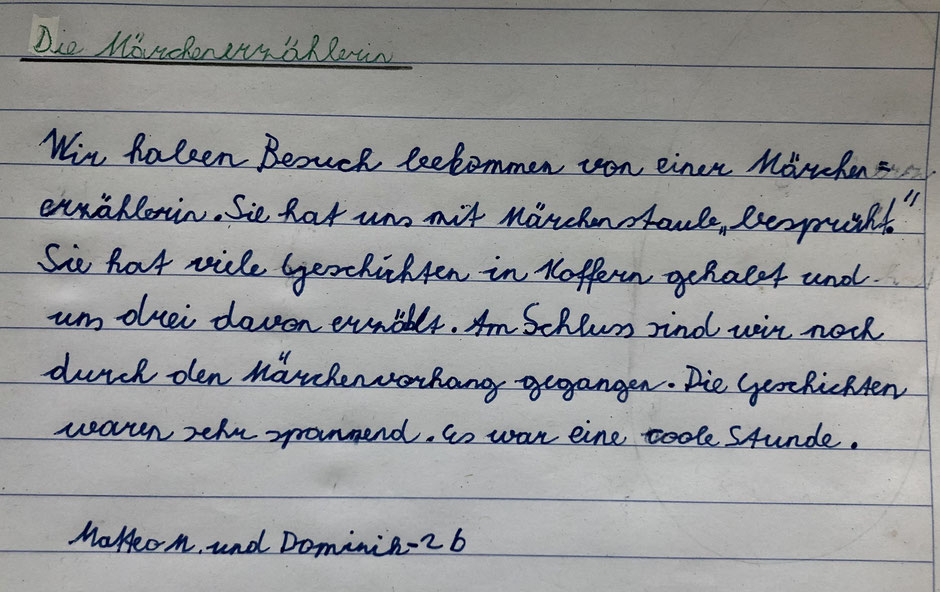 Die Märchenerzählerin
Wir haben Besuch bekommen von einer Märchen=
erzählerin. Sie hat uns mit Märchenstaub „besprüht."
Sie hat viele Geschichten in Koffern gehabt und
uns drei davon erzählt. Am Schluss sind wir noch
durch den Märchenvorhang gegangen. Die Geschichten
waren sehr spannend. Es war eine coole Stunde.
Matteo M. und Dominik-2b